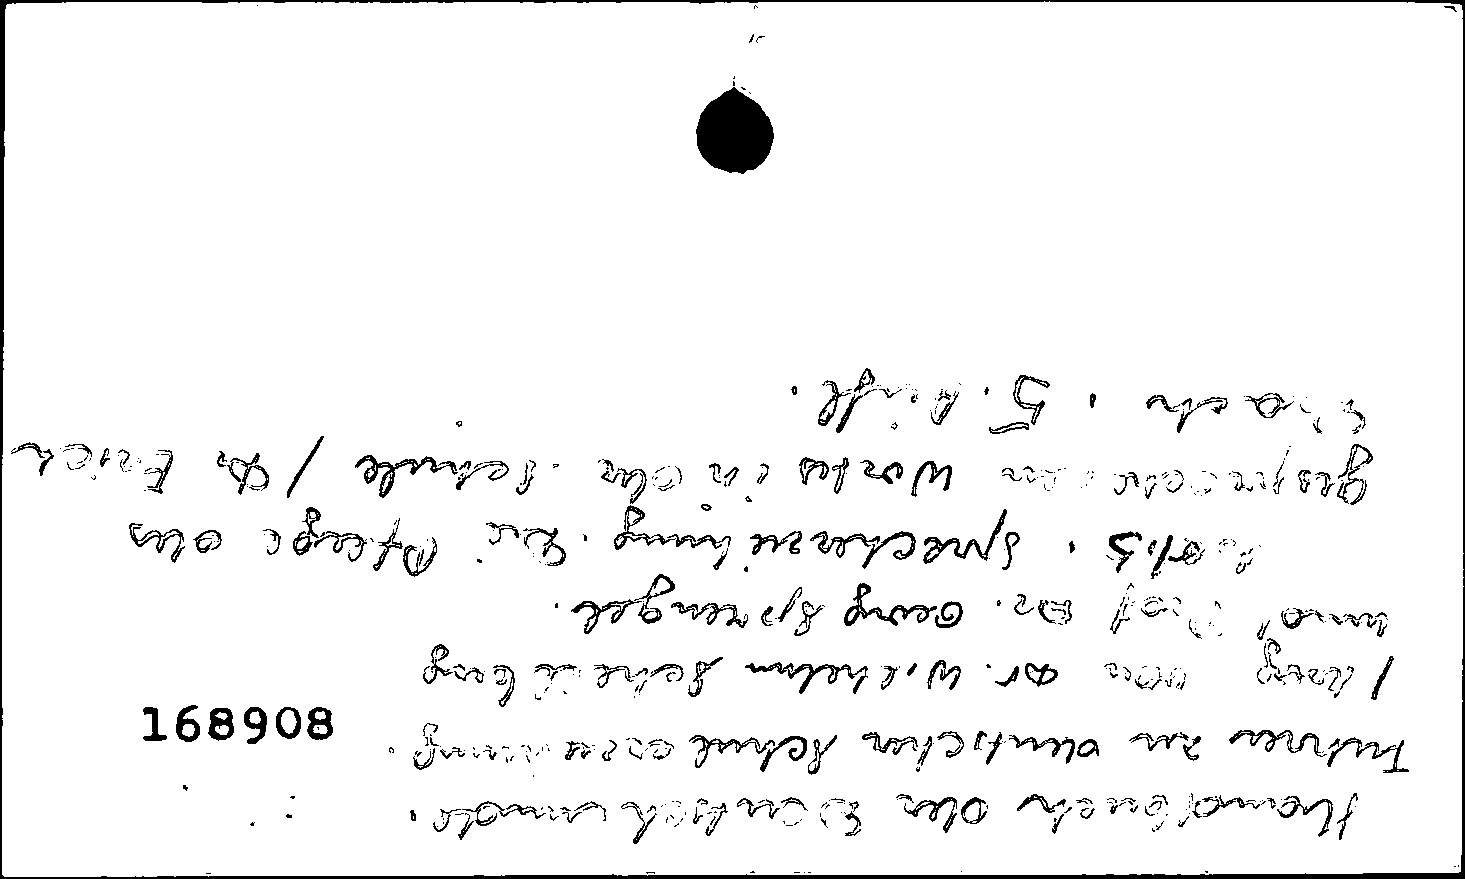 Handbuch der Deutschkunde.
Führer zu deutscher Schulerziehung.
/ hrsg von Dr. Wilhelm Schellberg
und Prof Dr. Georg Sprengel.
Bd.3. Sprecherziehung. Die Pflege des
gesprochenen Wortes in der Schule / Dr Erich
Drach. 5. Aufl.
168908